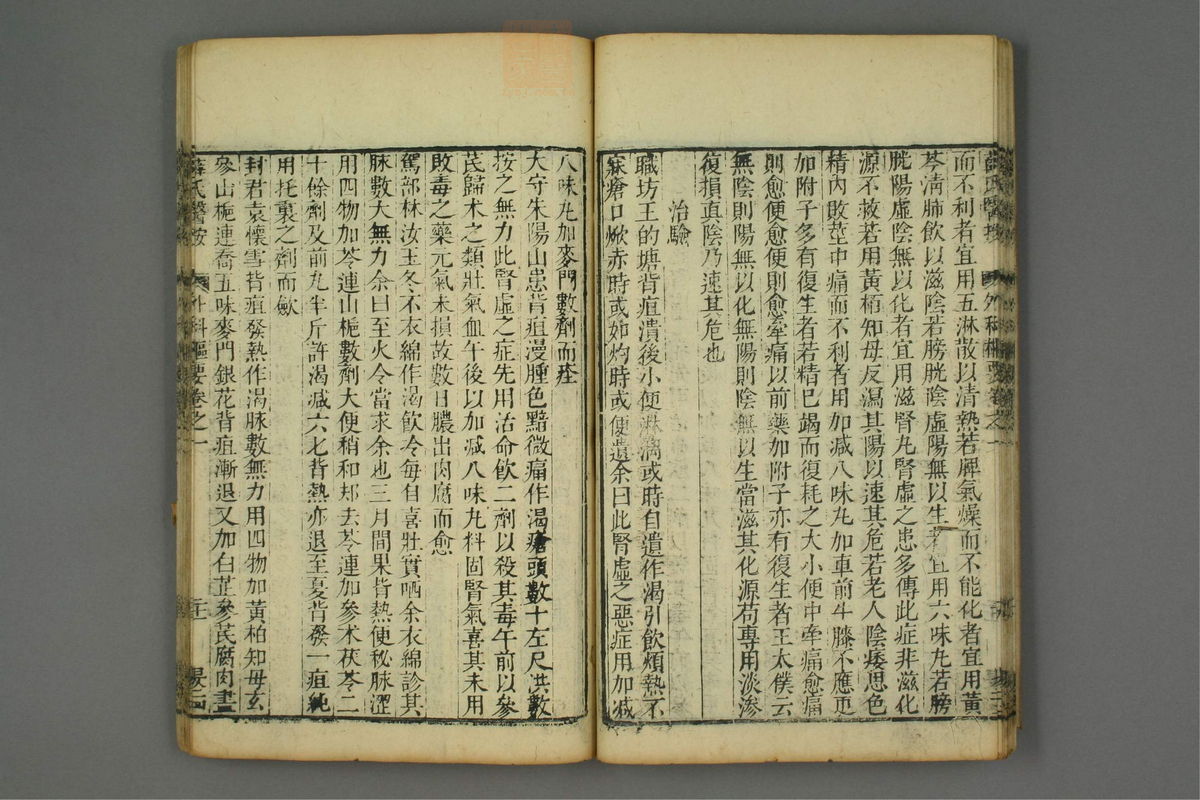 而不利者宜用五淋散以清熱若脾氣燥而不能化者宜用黃
芩清肺飲以滋陰若膀胱陰虛陽無以生者宜用六味丸若膀
胱陽虛陰無以化者宜用滋腎丸腎虛之患多傳此症非滋化
源不救若用黃栢知母反瀉其陽以速其危若老人陰痿思色
精內敗莖中痛而不利者用加减八味丸加車前牛膝不應更
加附子多有復生者若精已竭而復耗之大小便中牽痛愈痛
則愈便愈便則愈牽痛以前藥加附子亦有復生者王太僕云
無陰則陽無以化無陽則陰無以生當滋其化源苟專用淡滲
復損真陰乃速其危也
治驗
職坊王的塘背疽潰後小便淋漓或時自遺作渴引飲煩熱不
寐瘡口焮赤時或如灼時或便遺余曰此腎虛之惡症用加减
八味丸加麥門數劑而痊
大守朱陽山患背疽漫腫色黯微痛作渴瘡頭數十左尺洪數
按之無力此腎虛之症先用活命飲二劑以殺其毒午前以參
芪歸术之類壯氣血午後以加减八味丸料固腎氣喜其未用
敗毒之藥元氣未損故數日膿出肉腐而愈
駕部林汝玉冬不衣綿作渴飲冷每自喜壯實哂余衣綿診其
脉數大無力余曰至火令當求余也三月間果背熱便秘脉澀
用四物加芩連山梔數劑大便稍和却去芩連加參术茯苓二
十餘劑及前丸半斤許渴减六七背熱亦退至夏背發一疽純
用托裏之劑而歛
封君袁懷雪背疽發熱作渴脉數無力用四物加黃柏知母玄
參山梔連喬五味麥門銀花背疽漸退又加白芷參芪腐肉盡
薛氏醫按 外科樞要卷之一